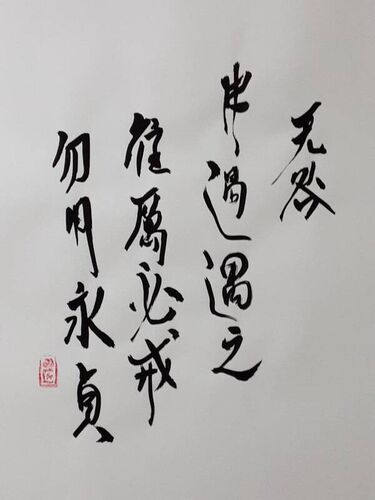 无咎
弗過遇之
往厲必戒
勿用永貞